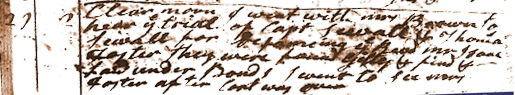 27 2 Clear morn I went with mrs Brown to
hear ye trial of Capt Sewall & Thomas
Sewall for foaming mr Isaac
Foster They were found Gilty & find &
Laid under Bonds I went to See mrs
foster after Cort was over